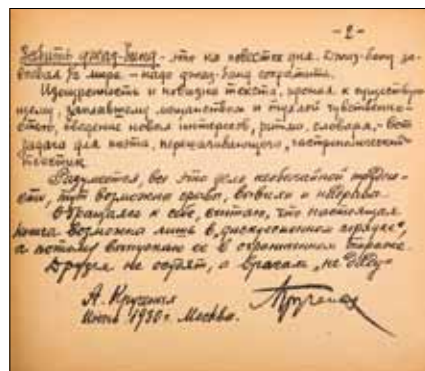 -2-
Забить джаз-банд - это на повестке дня. Джаз-банд за-
воевал ½ мира - надо джаз-банд сократить.
Изощренность и новизна текста, ирония к существую
щему, запахшему мещанством и тухлой чувственно-
стью, введение новых интересов, ритмо, словаря, - вот
задача для поэта, перешагивающего
текстик.
Разумеется, все это дело необычайной трудно-
сти, тут возможны срывы, вывихи и
Обращаясь к себе, считаю, что настоящая
книга возможна лишь в „дискуссионном порядке",
а потому выпускаю ее в ограниченном тираже.
Друзья не осудят, а врагам „не даду"
А. Крученых
Июнь 1930 г. Москва.
А Крученых